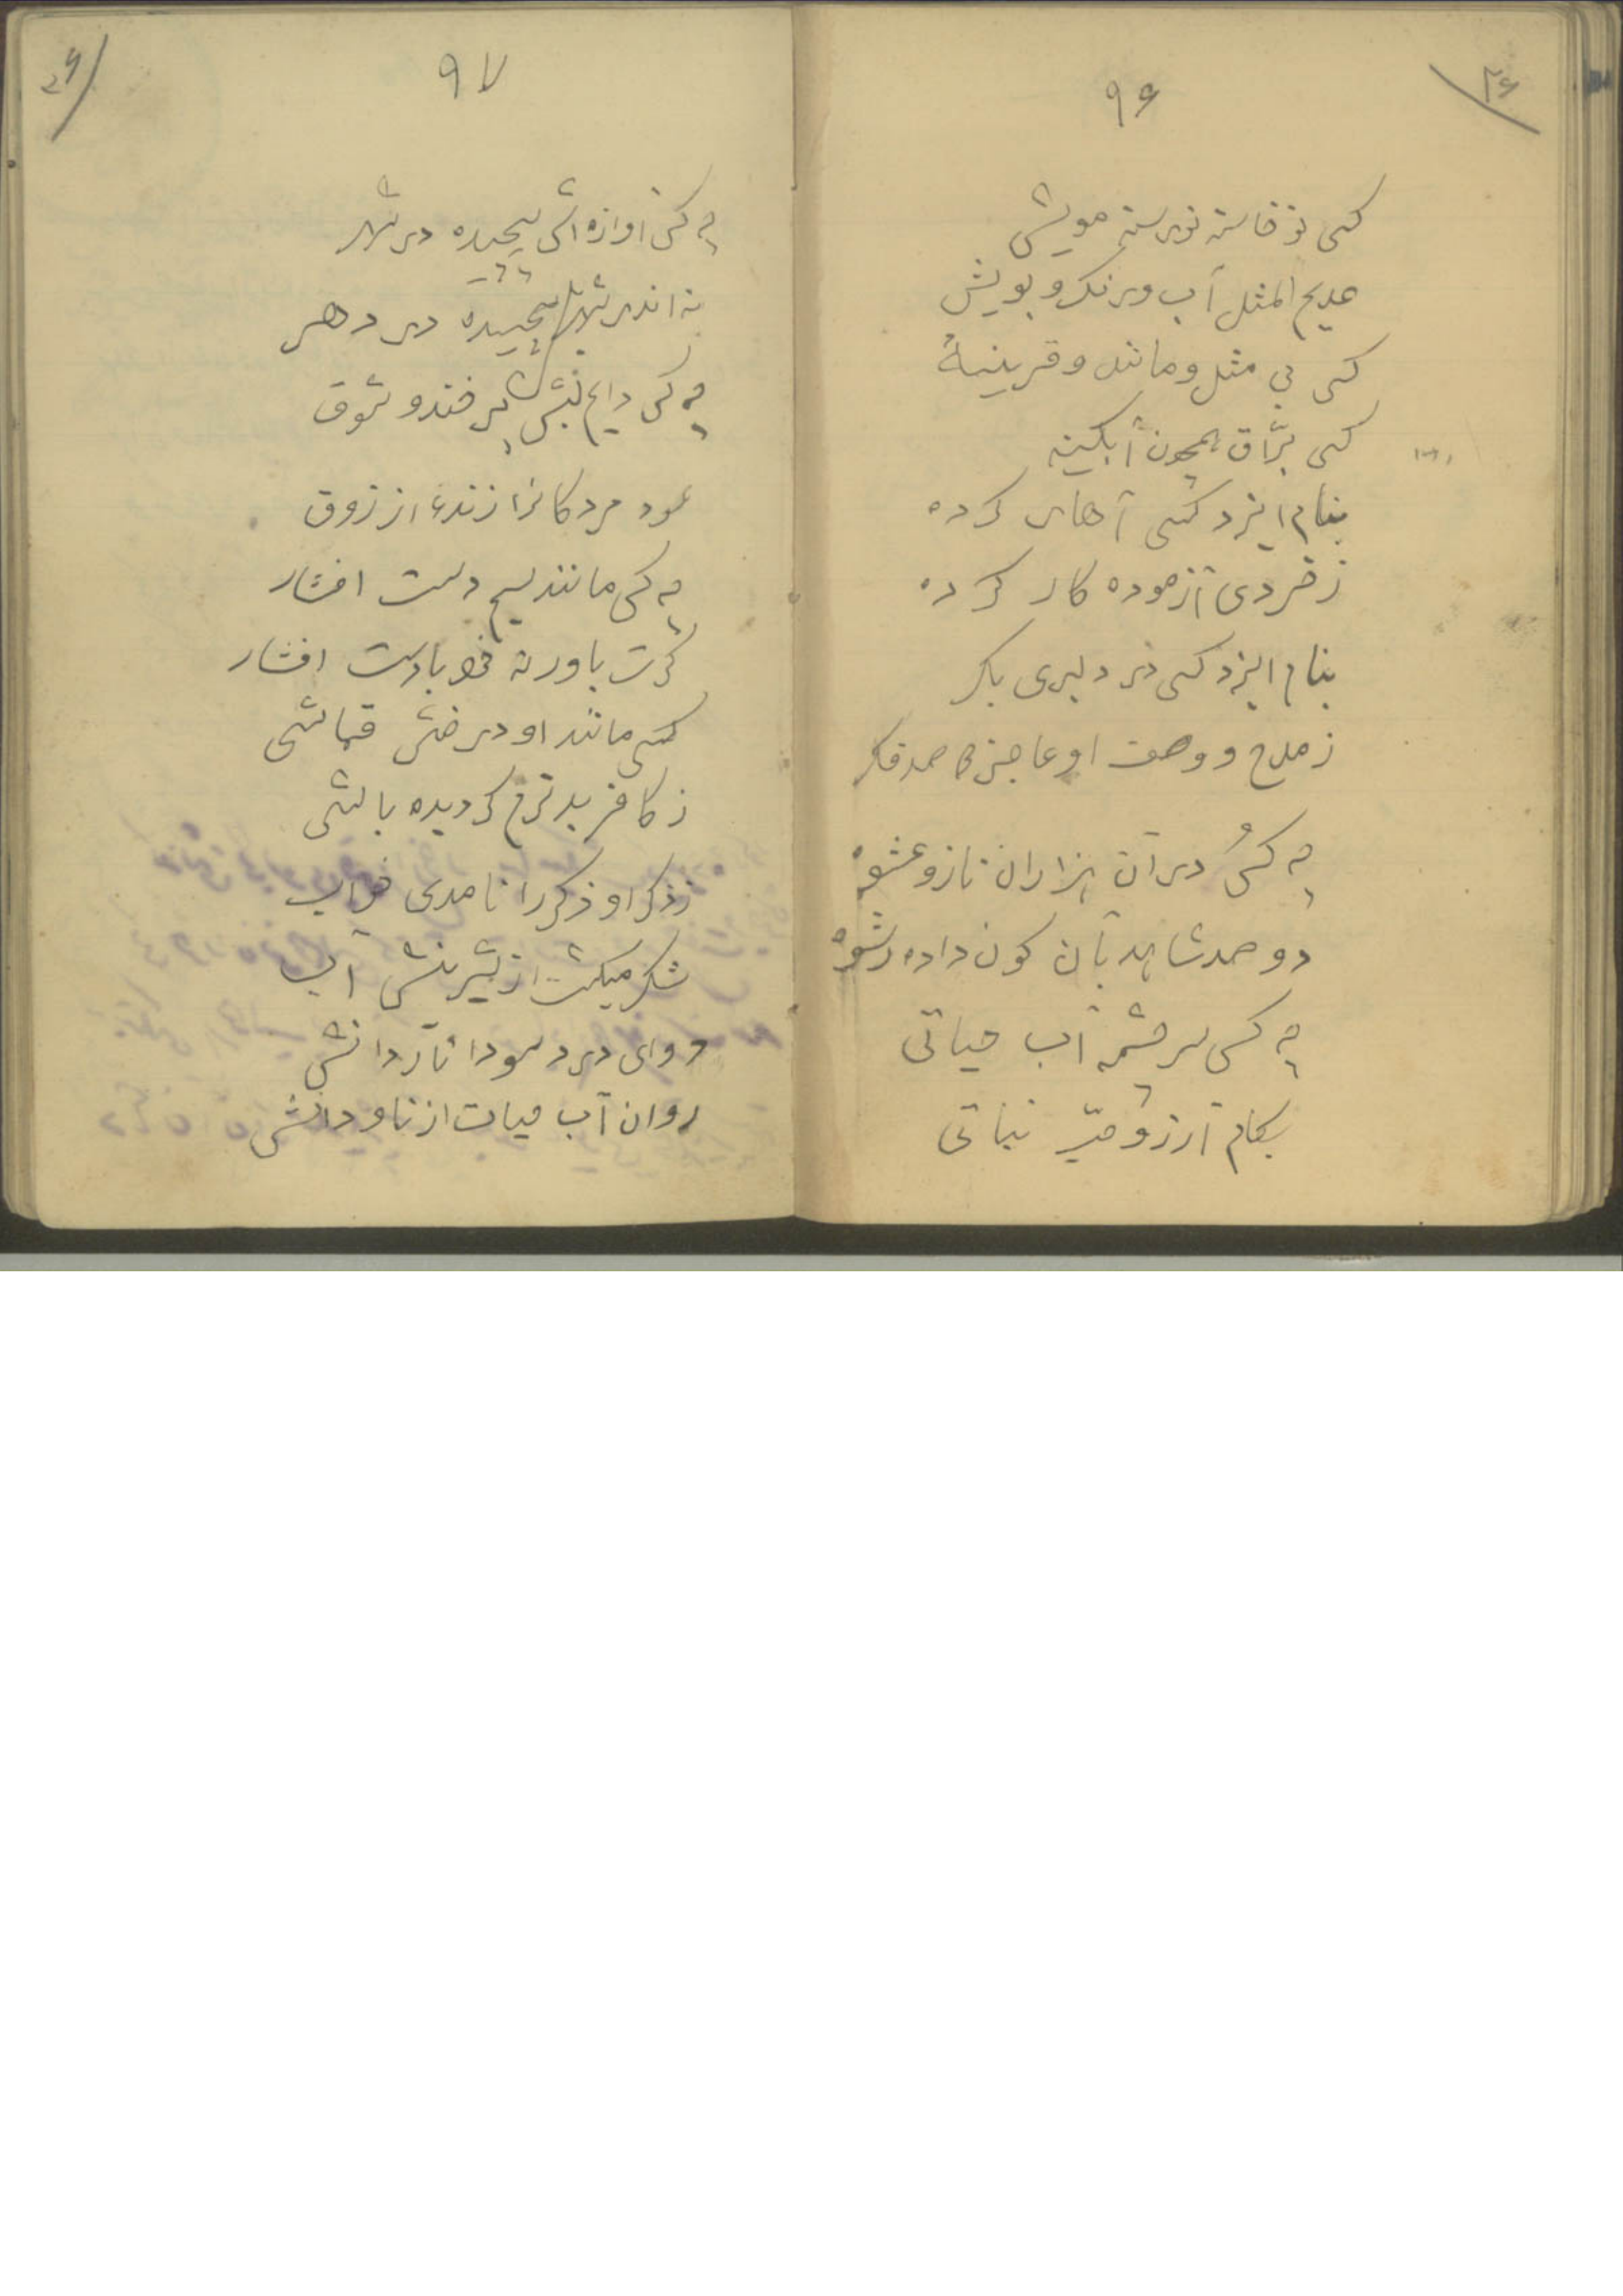 ۴۶
۹۶
کسی نوخاسته نورسته مویش
عدیم المثل آب و رنگ و بویش
کسی بی مثل و مانند و قرینهٔ
کسی برّاق همچون آبگینه
بنام ایزد کسی آهار کرده
ز خردی آزموده کار کرده
بنام ایزد کسی در دلبری بکر
ز مدح و وصف او عاجز صد فکر
چه کسُ در آن هزاران ناز و عشوه
دو صد شاهد بآن کون داده رشوه
چه کسی سرچشمه آب حیاتی
بکام آرزو نباتی
۹۷
چه کس آوازه اش پیچیده در شهر
نه اندر شهر پیچیده در دهر
چه کس دایم لبش پر خنده و شوق
نمود مردکانرا زنده از زوق
چه کس مانند سیم دست افشار
گرت باور نه خود با دست افشار
کسی مانند او در خش قماشی
ز کافر بدترم گردیده باشی
ز ذکر او ذکر را نامدی خواب
شکر میکشت از شیرینش آب
دوای درد سودا ناردانش
روان آب حیات از ناودانش